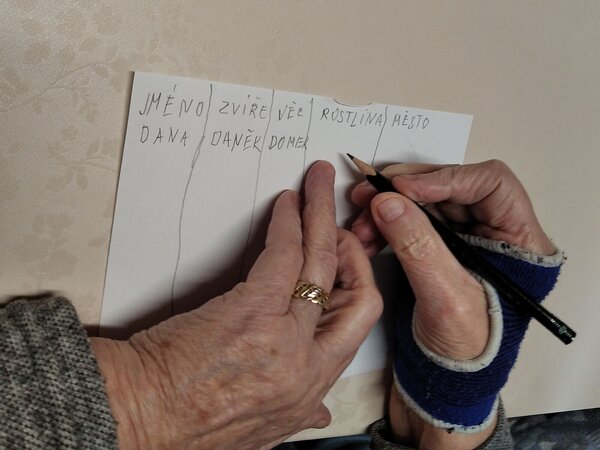 JMÉNO ZVÍŘE VĚC ROSTLINA MĚSTO
DANA DANĚK DOMEK